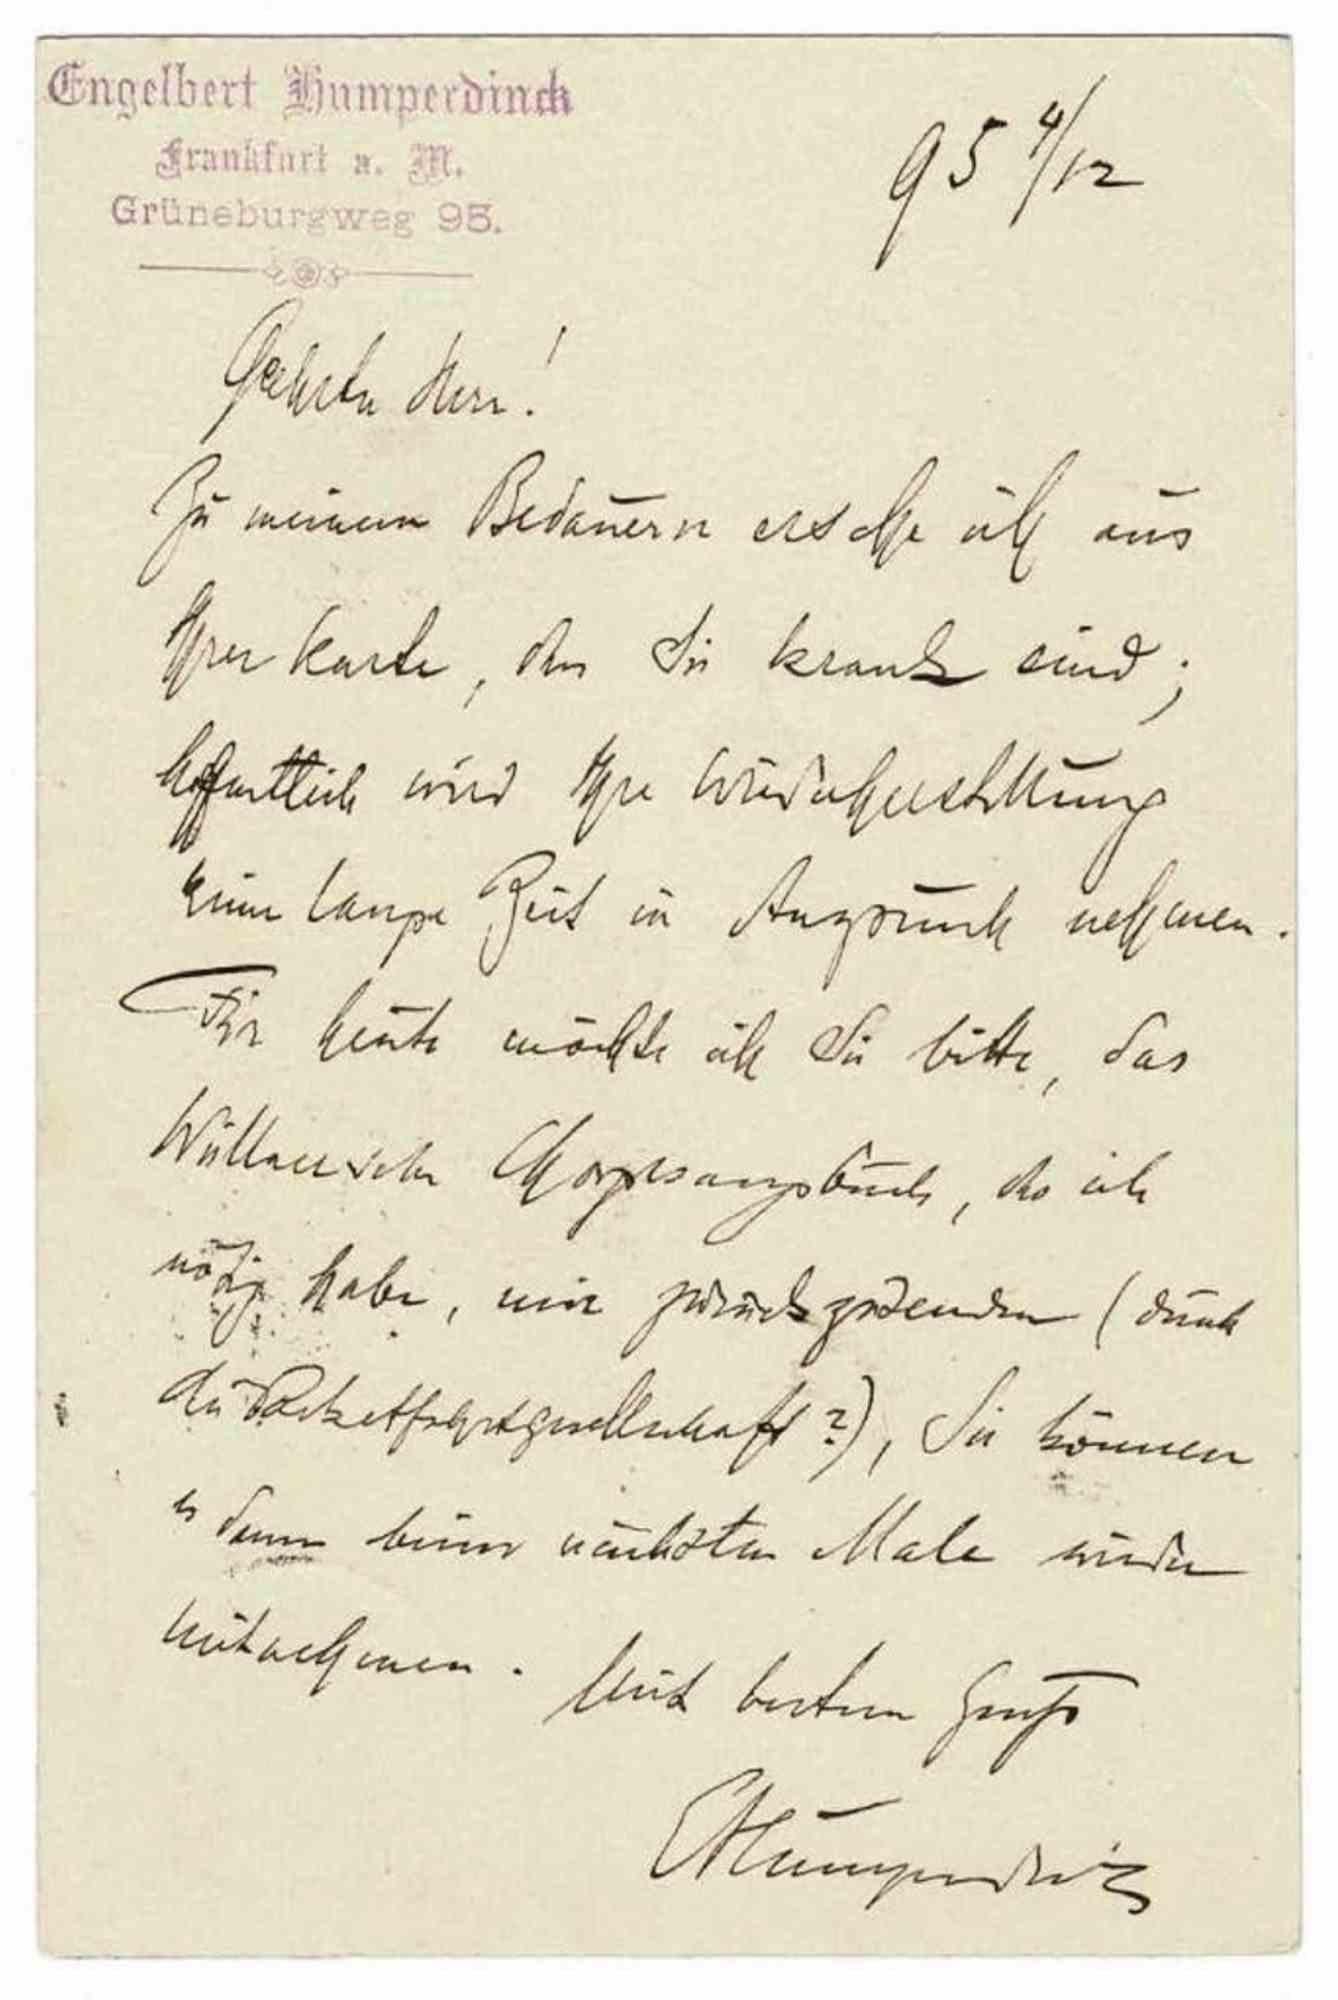 Engelbert Humperdinck
Frankfurt a. M.
Grüneburgweg 95.
95 4/12
Geehrter Herr!
Zu meinem Bedauern ersehe ich aus
Ihrer Karte, dass Sie krank sind;
hoffentlich wird Ihre Wiederherstellung
keine lange Zeit in Anspruch nehmen.
Für heute möchte ich Sie bitte, das
Wüllnersche Chorgesangsbuch, das ich
nötig habe, mir zurückzusenden (durch
die Packetfahrtgesellschaft?), Sie können
es dann beim nächsten Male wieder
mitnehmen. Mit bestem Gruß
EHumperdinck